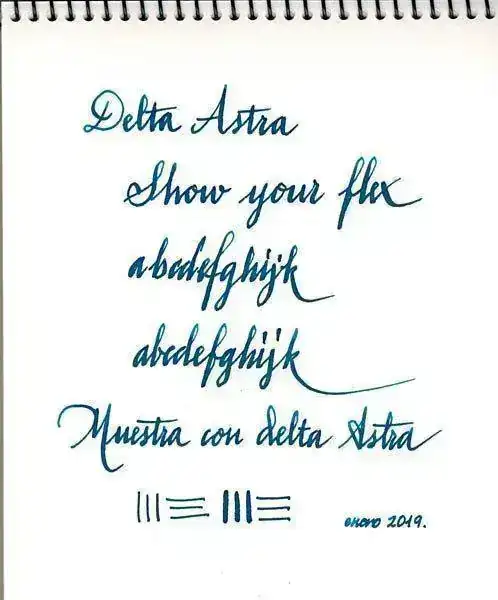 Delta Astra
Show your flex
abcdefghijk
abcdefghijk
Muestra con delta Astra
enero 2019.